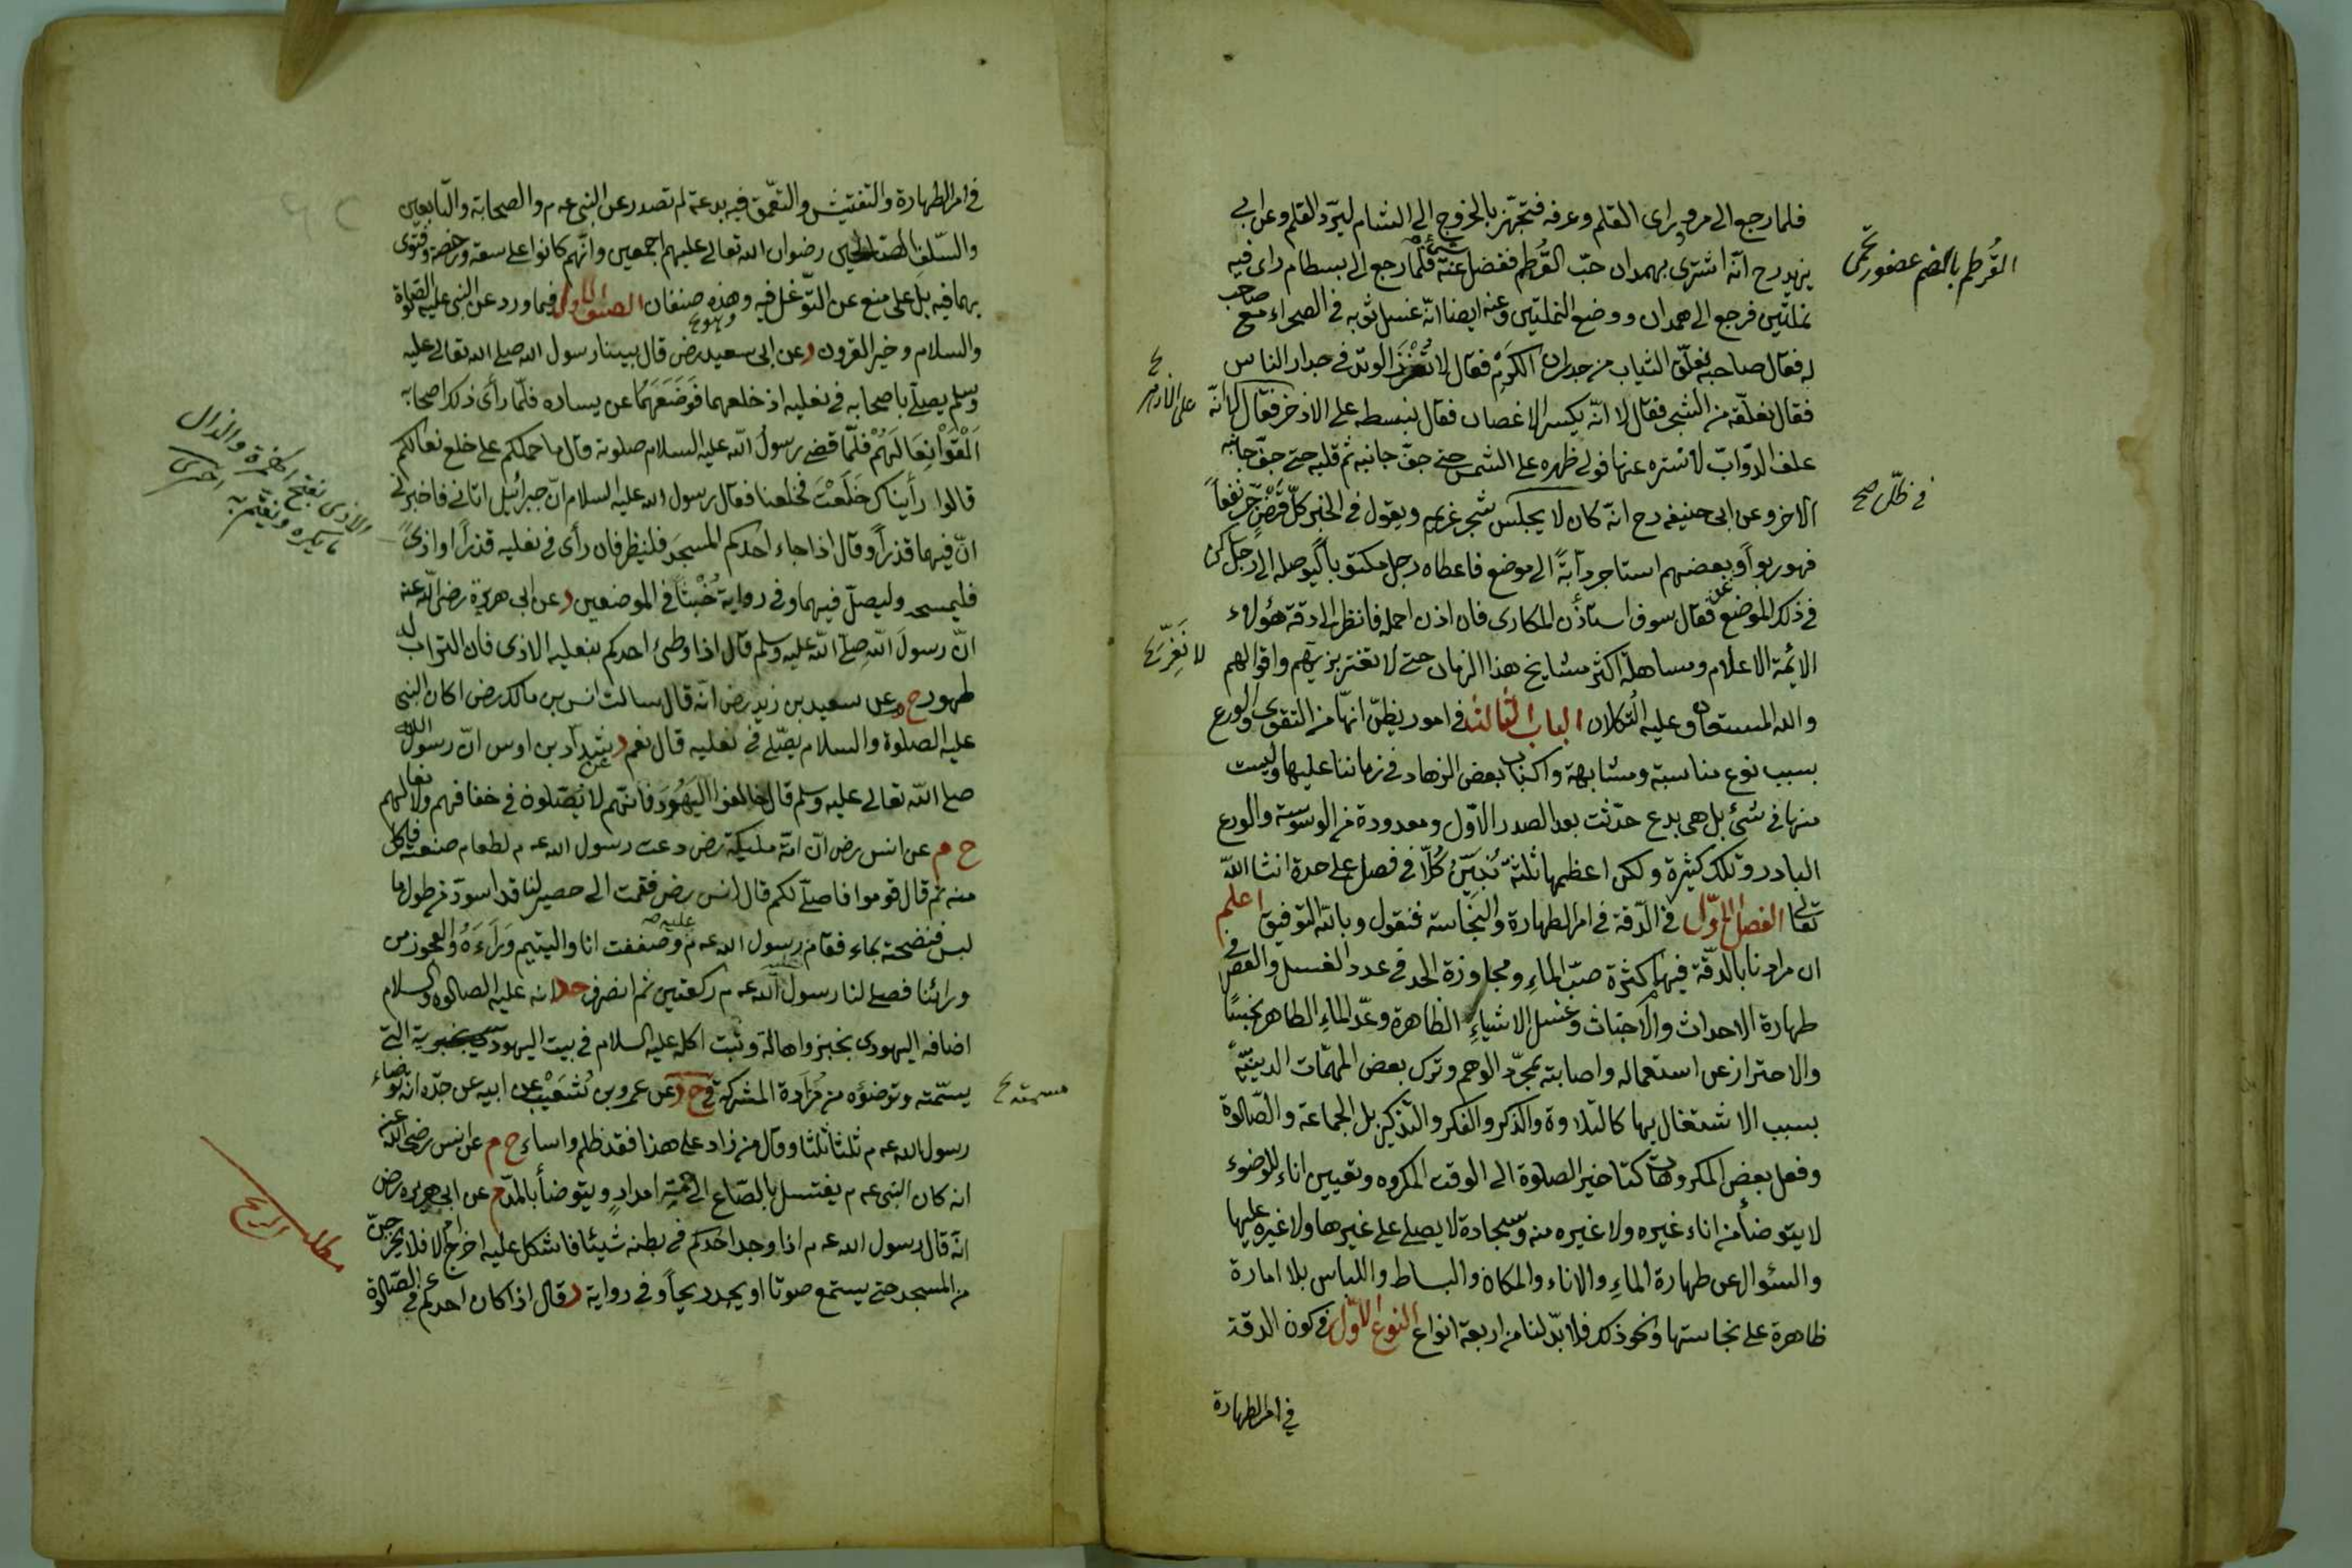 فلما رجع الى مرو رأى القلم وعرفه فتجهّز بالخروج الى الشام ليردّ القلم وعن ابى
يزيد رح انّه اشترى بهمدان حبّ القُرطم ففضل عنه شئ فلمّا رجع الى بسطام رأى فيه
نملتين فرجع الى همدان ووضع النملتين وعنه ايضا انّه غسل ثوبه فى الصحراء مع صاحب
له فقال صاحبه نعلّق الثياب من جدران الكَرْم فقال لا تُغْرِز الوتد فى جدار الناس
فقال نعلّقه من الشجر فقال لا انّه يكسر الاغصان فقال نبسطه على الاذخر فقال لا انّه
علف الدوّاب لا نستره عنها فولى ظهره على الشمس حتى جفّ جانبه ثم قلبه حتى جفّ جانبه
الاخر وعن ابى حنيفه رح انّه كان لا يجلس شجر غريمه ويقول فى الخبر كلّ قَرْضٍ جرّ نفعاً
فهو ربواً وبعضهم استاجر دابةً الى موضع فاعطاه رجل مكتوباً ليوصله الى رجل كن
فى ذلك الموضع فقال سوف استأذن المكارى فان اذن احمله فانظر الى دقة هؤلاء
الائمة الاعلام ومساهلة اكثر مشايخ هذا الزمان حتى لا تغتر بزيهم واقوالهم
والله المستعان وعليه التكلان الباب الثالث فى امور يظنّ انهّا من التقوى والورع
بسبب نوع مناسبة ومشابهة واكباب بعض الزهاد فى زماننا عليها وليست
منها فى شئ بل هى بدع حدثت بعد الصدر الاوّل ومعدودة من الوسوسة والورع
البارد وتلك كثيرة ولكن اعظمها ثلثة نُبيّنُ كُلّاً فى فصل على حدة انشا الله
تعالى الفصل الاوّل فى الدّقة فى امر الطهارة والنجّاسة فنقول وبالله التوفيق اعلم
ان مرادنا بالدقّة فيها كثرة صبّ الماءِ ومجاوزة الحد فى عدد الغسل والعصر فى
طهارة الاحداث والاخباث وغسل الاشياءِ الظاهرة وعدّ الماءِ الطاهر نجسًا
والاحتراز عن استعماله واصابته بمجرّد الوهم وترك بعض المهمّات الدينيّةِ
بسبب الاشتغال بها كالتلاوة والذكر والفكر والتذكير بل الجماعة والصّلوة
وفعل بعض المكروهات كتاخير الصلوة الى الوقت المكروه وتعيين اناء للوضوء
لا يتوضأ من اناء غيره ولا غيره منه وسجادة لا يصلى على غيرها ولا غيره عليها
والسئوال عن طهارة الماءِ والاناء والمكان والبساط واللباس بلا امارة
ظاهرة على نجاستها ونحو ذلك فلا بدّ لنا من اربعة انواع النوع الاوّل فى كون الدقة
فى امر الطهارة
القُرطم بالضم عصفور تخمى
على الاذخر
فى ظلّ صح
فى امر الطهارة والتفتيش والتعّمق فيه بدعة لم تصدر عن النبى عه م والصحابة والتابعين
والسّلف الصالحين رضوان الله تعالى عليهم اجمعين وانّهم كانوا على سعة ورخصة وفتوى
بهما فيه بل على منع عن التوّغل فيه وهذه صنفان الصنف الاول فيما ورد عن النبى عليه الصلوة
والسلام وخير القرون د عن ابى سعيد رض قال بينا رسول الله صلى الله تعالى عليه
وسلم يصلّى باصحابه فى نعليه اذ خلعهما فَوَضَعَهُمَا عن يساره فلمّا رأى ذلك اصحابه
اَلْقَوْا نِعَالَهُمْ فلمّا قضى رسول الله عليه السلام صلوته قال ما حملكم على خلع نعالكم
قالوا رأيناك خَلَعْتَ فخلعنا فقال رسول الله عليه السلام انّ جبرائيل اتانى فاخبرنى
انّ فيهما قذراً وقال اذا جاء احدكم المسجدَ فلينظر فان رأى فى نعليه قذراً او اذىً
فليمسحه وليصلّ فيهما وفى رواية خُبْثاً فى الموضعين د عن ابى هريرة رضى الله عنه
انّ رسولَ اللهِ صلى الله عليه وسلم قال اذا وطئ احدكم بنعليه الاذى فان التراب له
طهور خ م عن سعيد بن زيد رض انّه قال سالت انس بن مالك رض اكان النبى
عليه الصلوة والسلام يصّلى فى نعليه قال نعم د عن شدّاد بن اوس انّ رسول الله
صلى الله تعالى عليه وسلم قال خالفوا اليَهُودَ فانّهم لا يصّلون فى خفافهم ولا نعالهم
خ م عن انس رض انّ امّه مليكة رض دعت رسول الله عه م لطعام صنعته فاكل
منه ثم قال قوموا فاصلّى لكم قال انس رض فقمت الى حصير لنا قد اسودّ من طول ما
لبس فنضحته بماء فقام عليه رسول الله عه م وصففت انا واليتيم وَرَاءَهُ والعجوز من
ورائنا فصلى لنا رسول الله عه م ركعتين ثم انصرف حد انه عليه الصلوة والسلام
اضافه اليهودى بخبز واهالة وثبت اكله عليه السلام فى بيت اليهودية التى
يسمّته وتوضؤه من مَزَادة المشركة د عن عمرو بن شُعَيْب عن ابيه عن جدّه انه توضاء
رسول الله عه م ثلثا ثلثا وقال من زاد على هذا فقد ظلم واساء خ م عن انس رضى الله عنه
انه كان النبى عه م يغتسل بالصّاع الى خمسة امدادٍ ويتوضأ بالمدّ م عن ابى هريره رض
انّه قال رسول الله عه م اذا وجد احدكم فى بطنه شيئا فاشكل عليه اخرج ام لا فلا يخرجنّ
من المسجد حتى يستمع صوتا او يجد ريحاً وفى رواية د قال اذا كان احدكم فى الصّلوة
الاذى بفتح الهمزة والذال
ما يكره ويغتمّ به اخترى